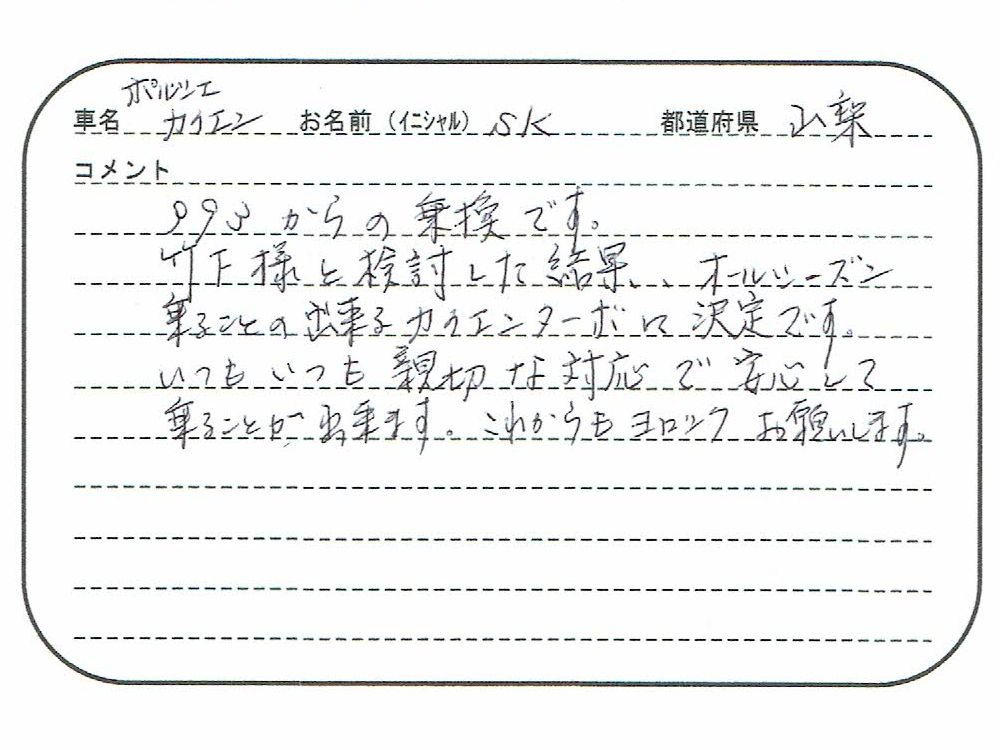 ポルシェ
車名 カイエン お名前(イニシャル) SK 都道府県 山梨
コメント
993からの乗換です。
竹下様と検討した結果、、オールシーズン
乗ることの出来るカイエンターボに決定です。
いつもいつも親切な対応で安心して
乗ることが出来ます。これからもヨロシクお願いします。